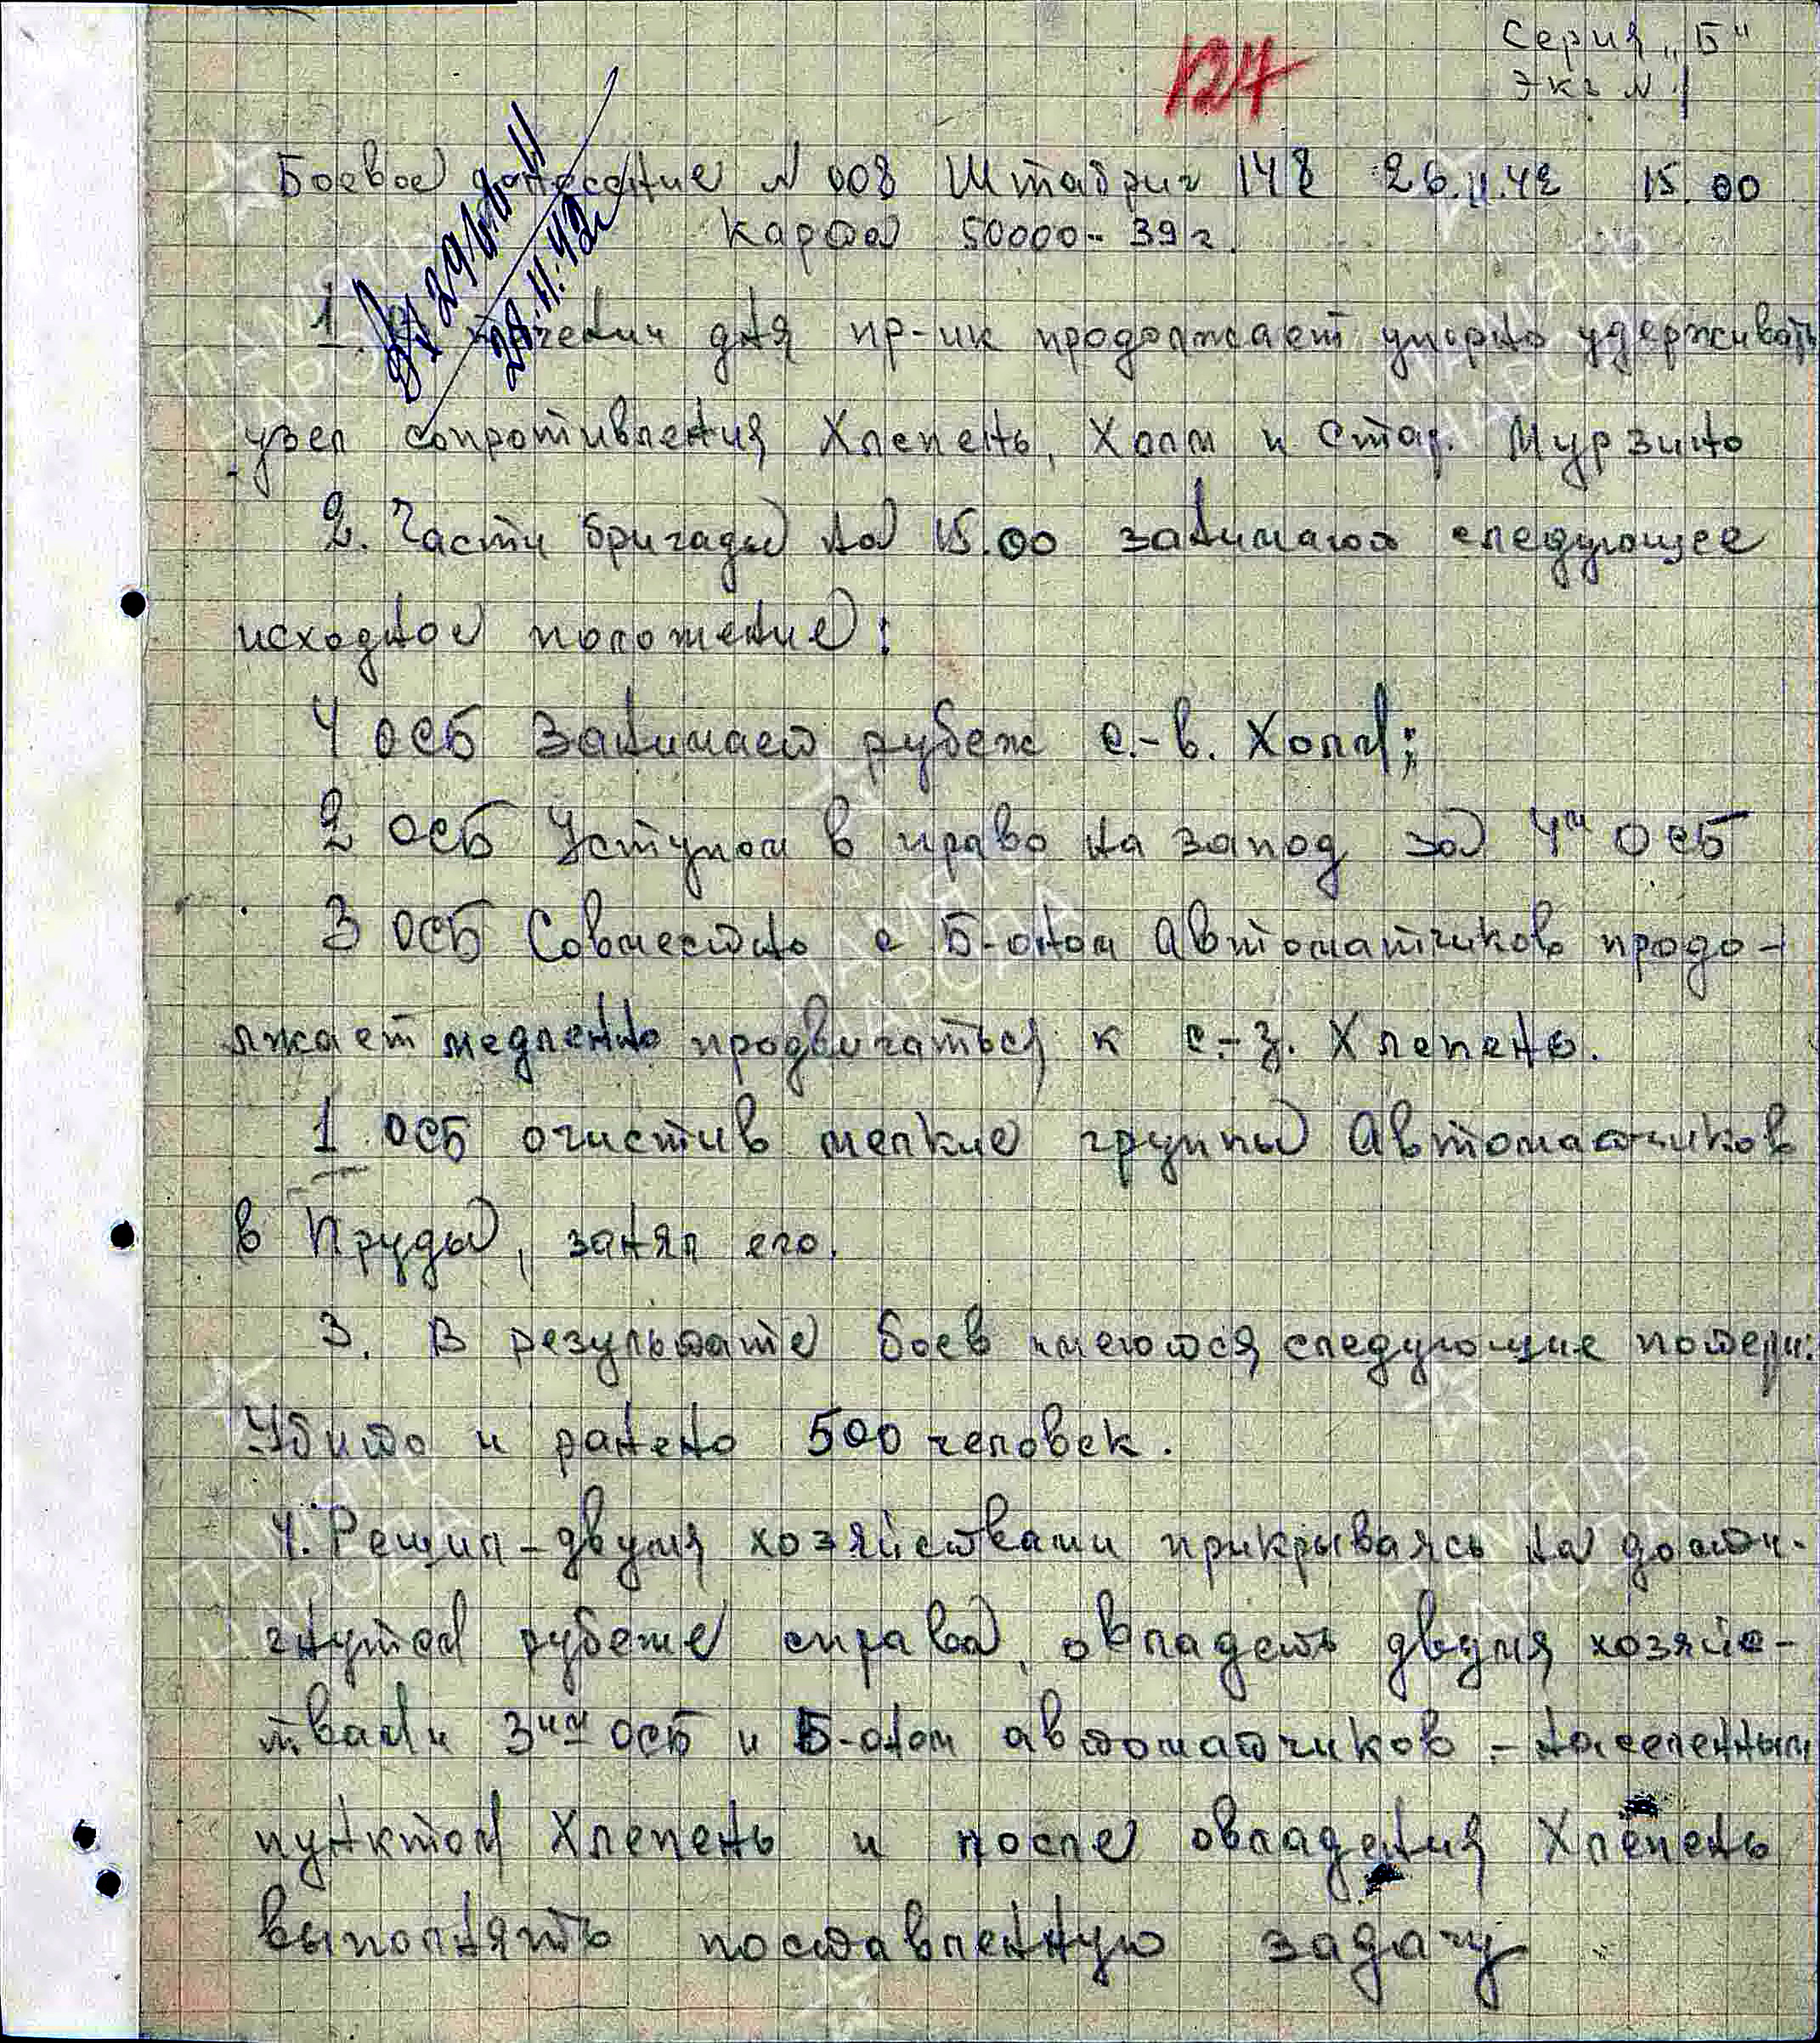 Серия „Б"
Экз N 1
124
Боевое донесение N 008 Штабриг 148 26.11.42 15.00
карта 50000-39г.
28.11.42г
1. В течении дня пр-ик продолжает упорно удерживать
узел сопротивления Хлепень, Холм и Стар. Мурзино
2. Части бригады на 15.00 занимают следующее
исходное положение:
4 ОСБ занимает рубеж с.-в. Холм;
2 ОСБ Уступом в право на запод за 4м ОСБ
3 ОСБ Совместно с Б-оном Автоматчиков продо-
лжает медленно продвигаться к с.-з. Хлепень.
1 ОСБ очистив мелкие группы Автоматчиков
в Пруды, занял его.
3. В результате боев имеются следующие потери.
Убито и ранено 500 человек.
4. Решил - двумя хозяйствами прикрываясь на дости-
гнутом рубеже справа, овладеть двумя хозяйс-
твами 3им ОСБ и Б-оном автоматчиков - населенным
пунктом Хлепень и после овладения Хлепень
выполнять поставленную задачу
ПАМЯТЬ
НАРОДА
ПАМЯТЬ
НАРОДА
ПАМЯТЬ
НАРОДА
ПАМЯТЬ
НАРОДА
ПАМЯТЬ
НАРОДА